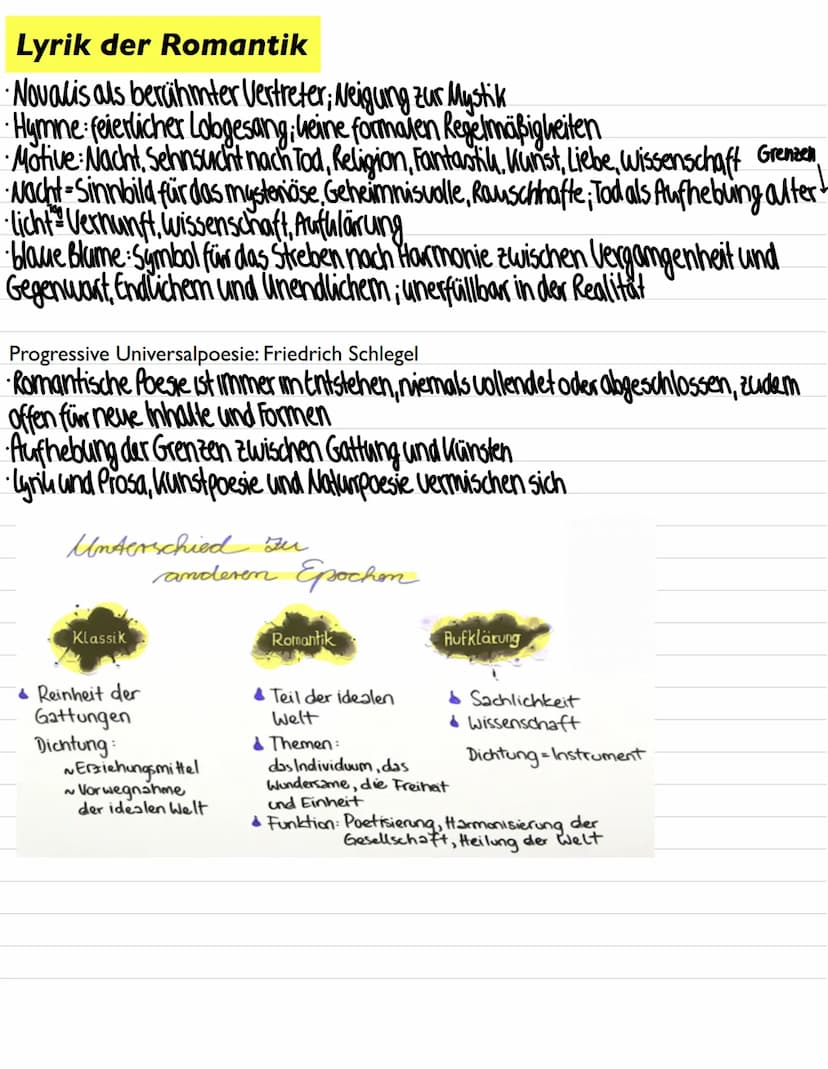 Lyrik der Romantik
· Novalis als berühmter Vertreter; Neigung zur Mystik
· Hymne: feierlicher Lobgesang; keine formalen Regelmäßigkeiten
· Motive: Nacht, Sehnsucht nach Tod, Religion, Fantastik, Kunst, Liebe, Wissenschaft Grenzen
· Nacht = Sinnbild für das mysteriöse, Geheimnisvolle, Rauschhafte; Tod als Aufhebung alter
· licht = Vernunft, Wissenschaft, Aufklärung
· blaue Blume: Symbol für das Streben nach Harmonie zwischen Vergangenheit und
Gegenwart, Endlichem und Unendlichem; unerfüllbar in der Realität
Progressive Universalpoesie: Friedrich Schlegel
· Romantische Poesie ist immer im Entstehen, niemals vollendet oder abgeschlossen, zudem
offen für neue Inhalte und Formen
· Aufhebung der Grenzen zwischen Gattung und Künsten
· Lyrik und Prosa, Kunstpoesie und Naturpoesie vermischen sich
Unterschied zu
anderen Epochen
Klassik
Reinheit der
Gattungen
Dichtung:
~ Erziehungsmittel
~ Vorwegnahme
der idealen Welt
Romantik
Teil der idealen
Welt
Themen:
das Individuum, das
Wundersame, die Freiheit
und Einheit
Funktion: Poetisierung, Harmonisierung der
Gesellschaft, Heilung der Welt
Aufklärung
Sachlichkeit
Wissenschaft
Dichtung = Instrument